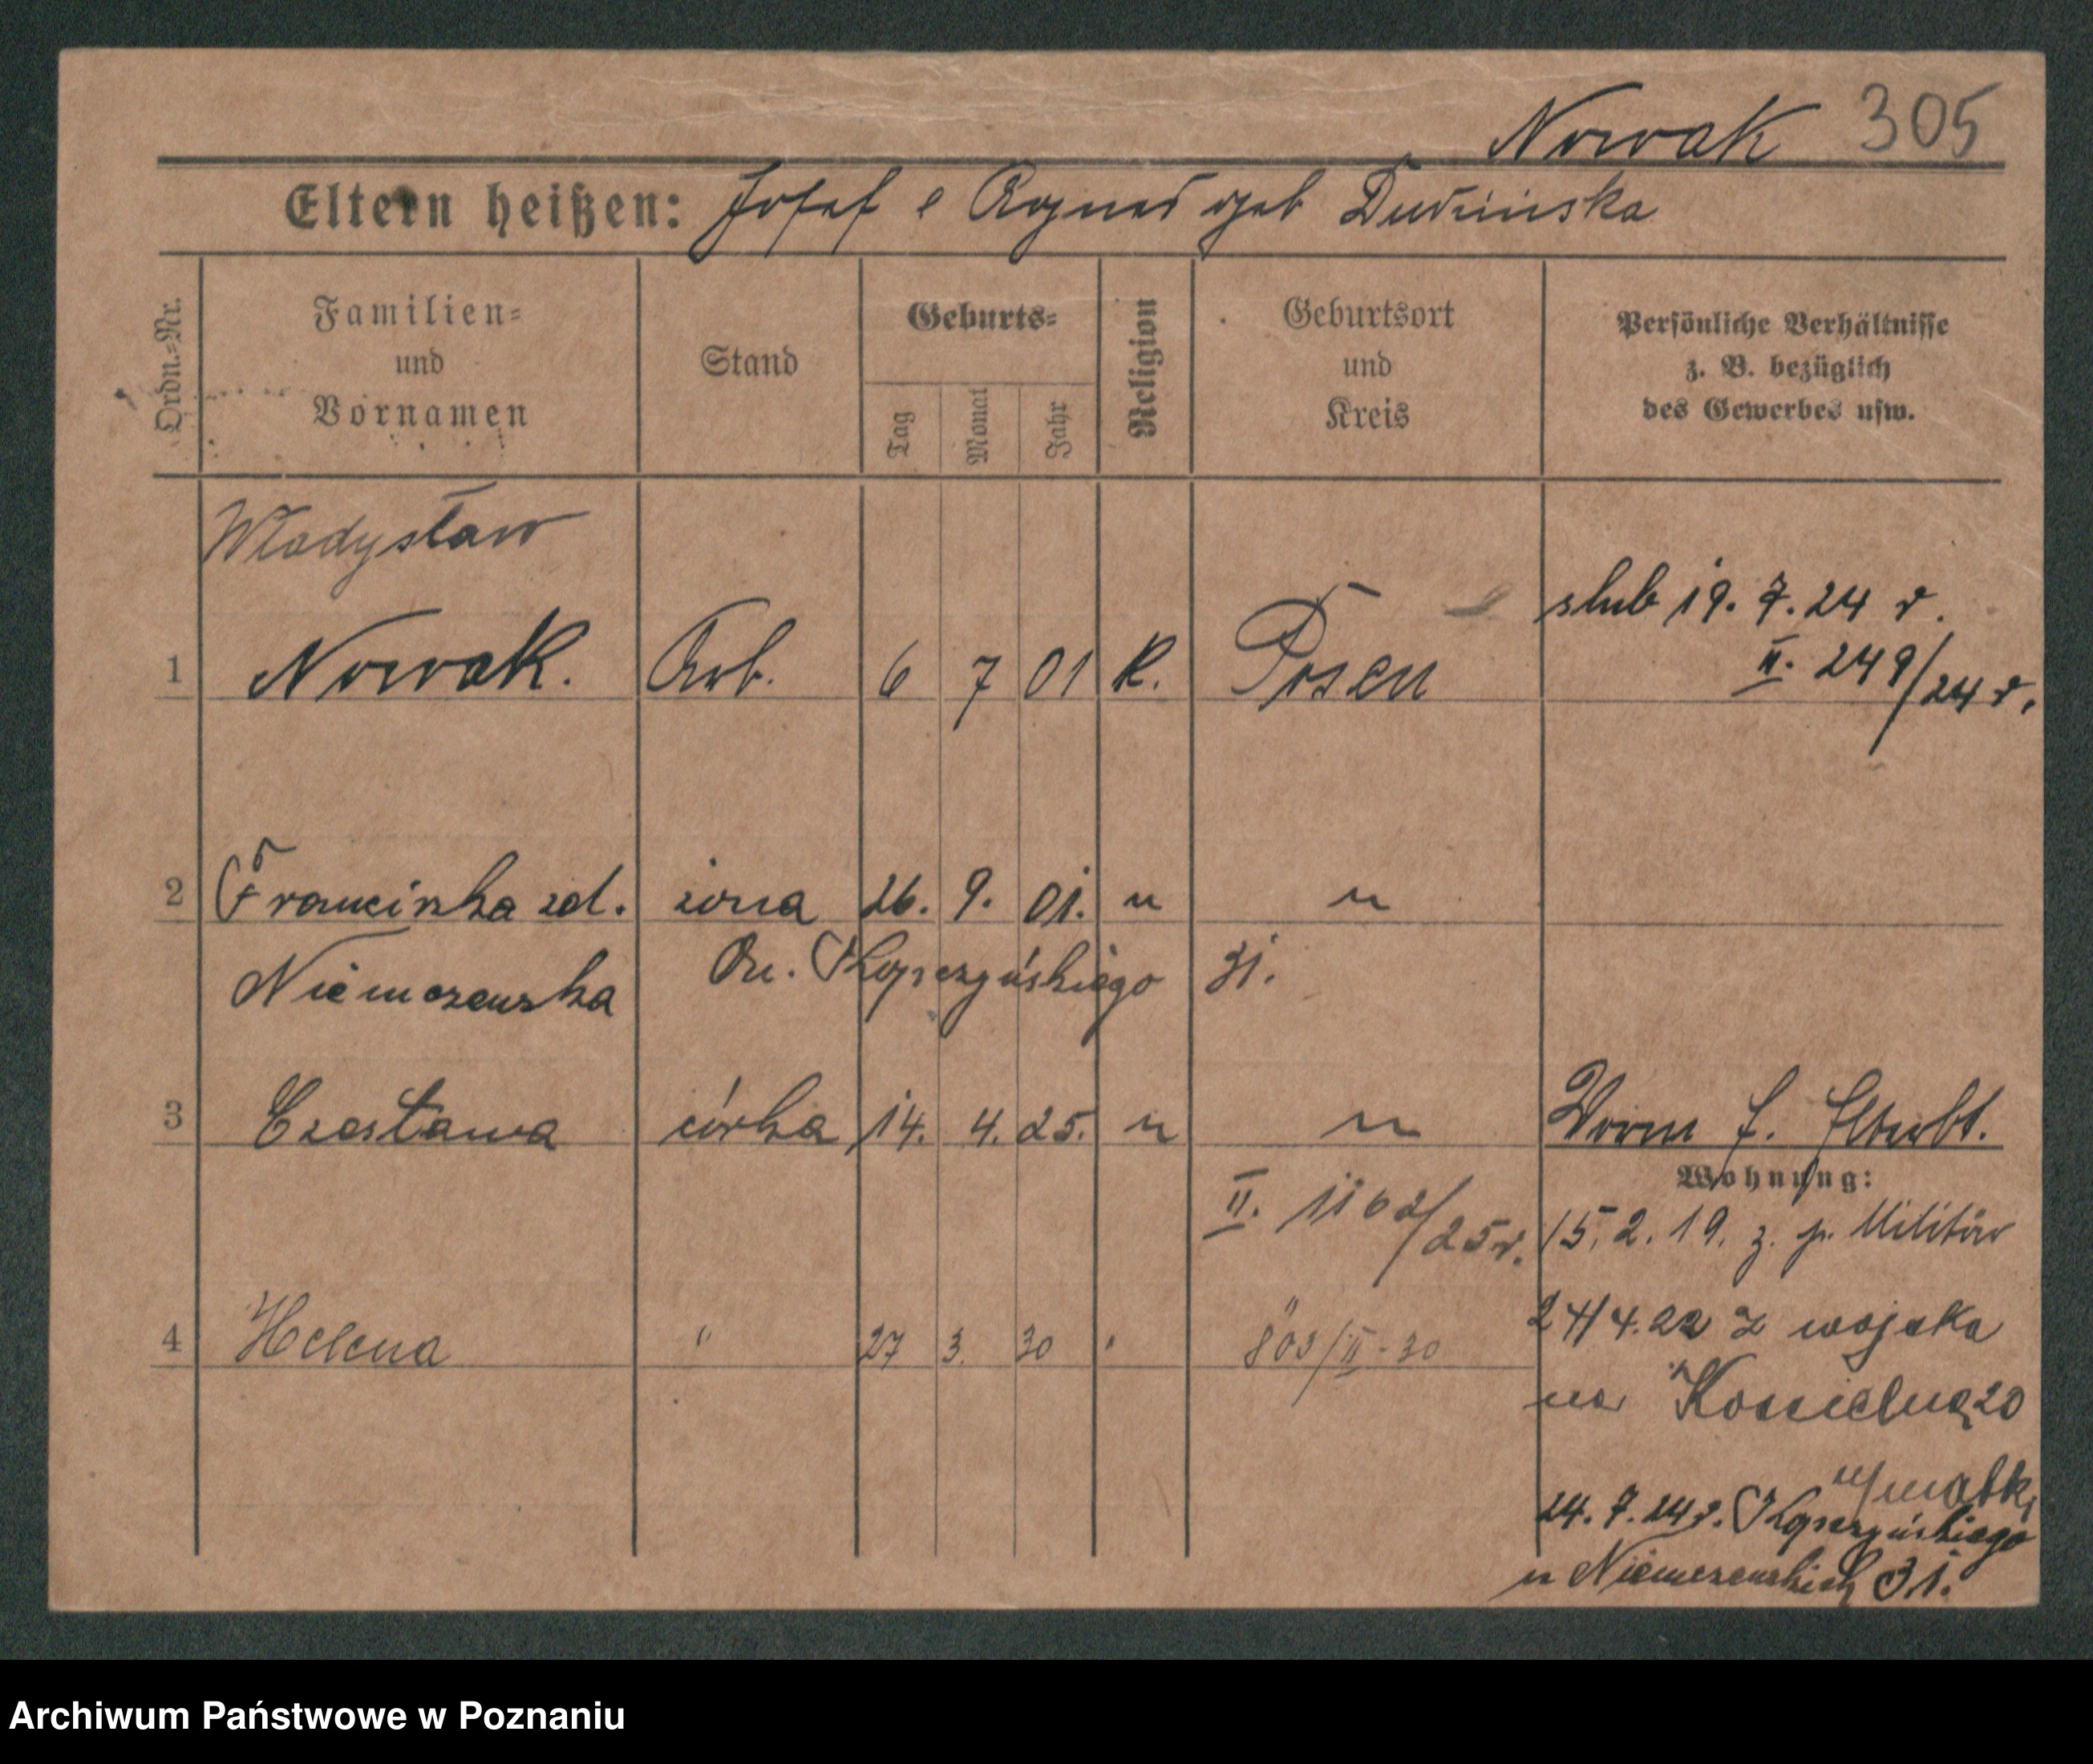 Nowak 305
Eltern heißen: Josef e Agnes geb Dudzinska
Ordn.=Nr.
Familien=
und
Vornamen
Stand
Geburts=
Tag
Monat
Jahr
Religion
Geburtsort
und
Kreis
Persönliche Verhältnisse
z. B. bezüglich
des Gewerbes usw.
Władysław
ślub 19. 7. 24 r.
1 Nowak. Arb. 6 7 01 K. Posen II. 249/24 r.
2 Franciszka zd. żona 26. 9. 01. " "
Niemczewska Kopczyńskiego 31.
3 Czesława córka 14. 4. 25. " "
Wohnung:
II. 1162/25 r. 15. 2. 19. z. p. Militär
24/4. 22 z wojska
4 Helena " 27 3. 30 " 803/II - 30
na 20
u/matki
24. 7. 24 r. Kopczyńskiego
u Niemczewskich 31.
Archiwum Państwowe w Poznaniu